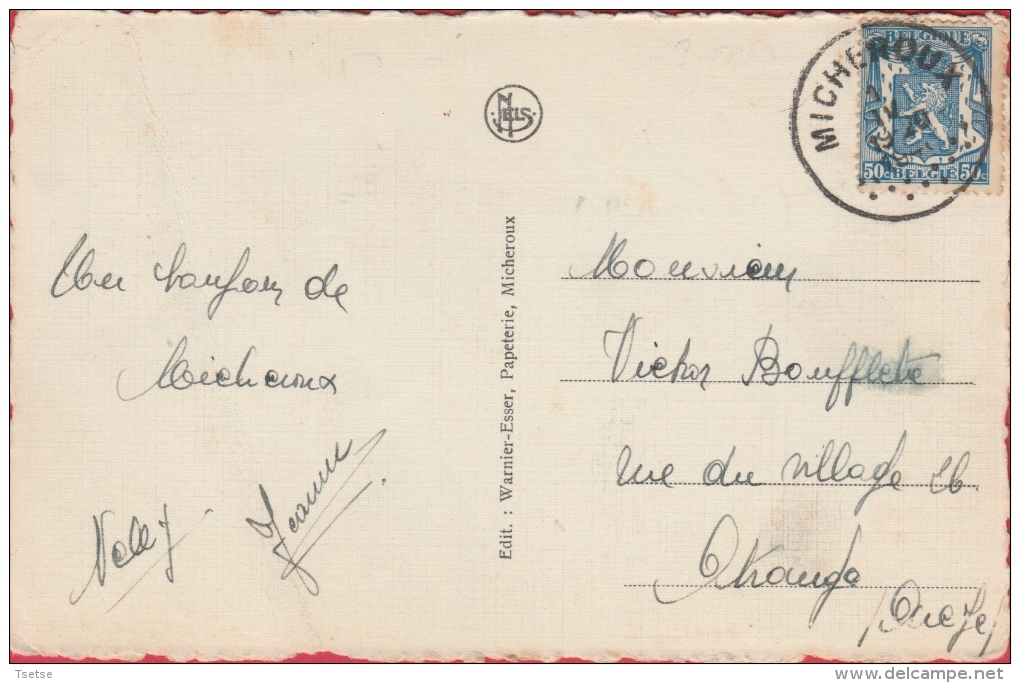 BELGIQUE
MICHEROUX
50c BELGIË 50c
NELS
Un bonjour de
Micheroux
Nelly
Jeanne
Edit. : Warnier-Esser, Papeterie, Micheroux
Monsieur
Victor Boufflette
rue du village 26
Tsetse
delcampe.net